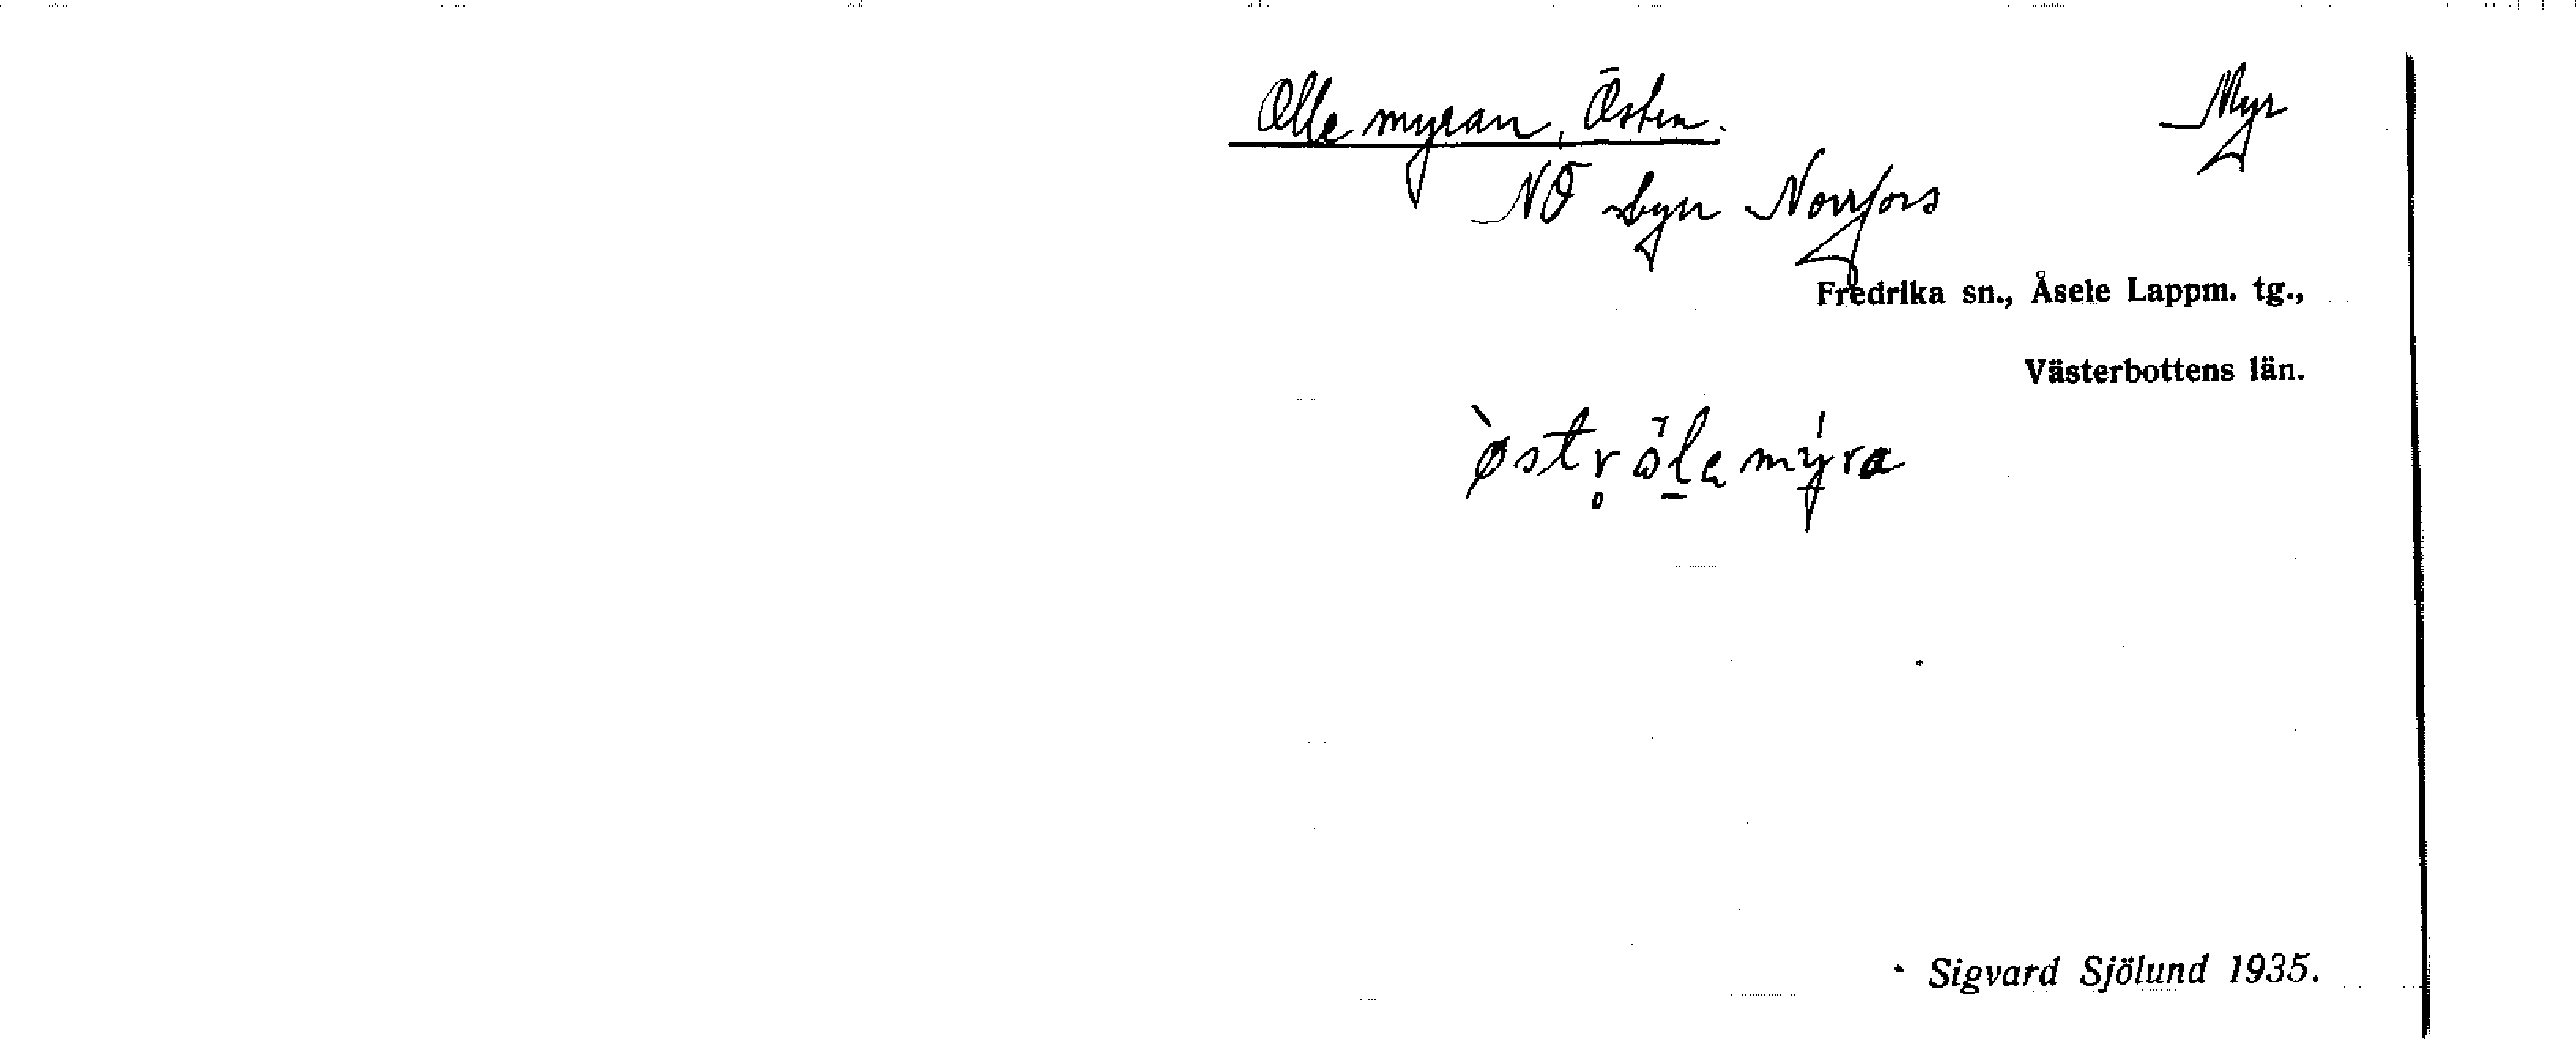 Olle myran, Östra. Myr
NO byn Norrfors
Fredrika sn., Åsele Lappm. tg.,
Västerbottens län.
Sigvard Sjölund 1935.